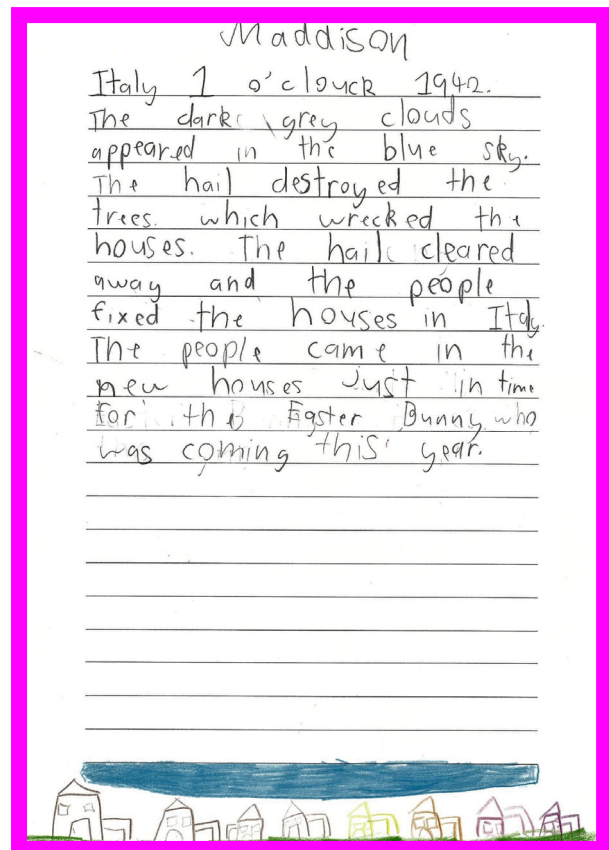 Maddison
Italy 1 o'clouck 1942.
The dark grey clouds
appeared in the blue sky.
The hail destroyed the
trees. which wrecked the
houses. The hail cleared
away and the people
fixed the houses in Italy.
The people came in the
new houses Just in time
for the Easter Bunny who
was coming this year.